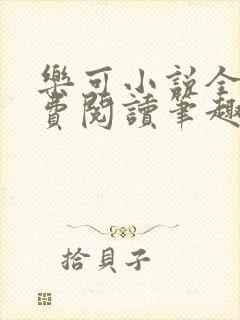 樂可小說全
費閱讀筆趣
拾貝子